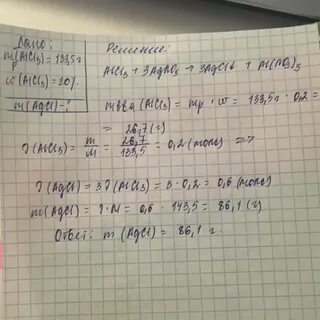 Дано:
m(AlCl₃) = 133,5 г
р
ω(AlCl₃) = 20%
m(AgCl) - ?
Решение:
AlCl₃ + 3AgNO₃ → 3AgCl↓ + Al(NO₃)₃
m в-ва (AlCl₃) = mр · ω = 133,5г · 0,2 =
= 26,7 (г)
ν(AlCl₃) = m/M = 26,7/133,5 = 0,2 (моль) =>
ν(AgCl) = 3ν(AlCl₃) = 3 · 0,2 = 0,6 (моль)
m(AgCl) = ν · M = 0,6 · 143,5 = 86,1 (г)
Ответ: m(AgCl) = 86,1 г.